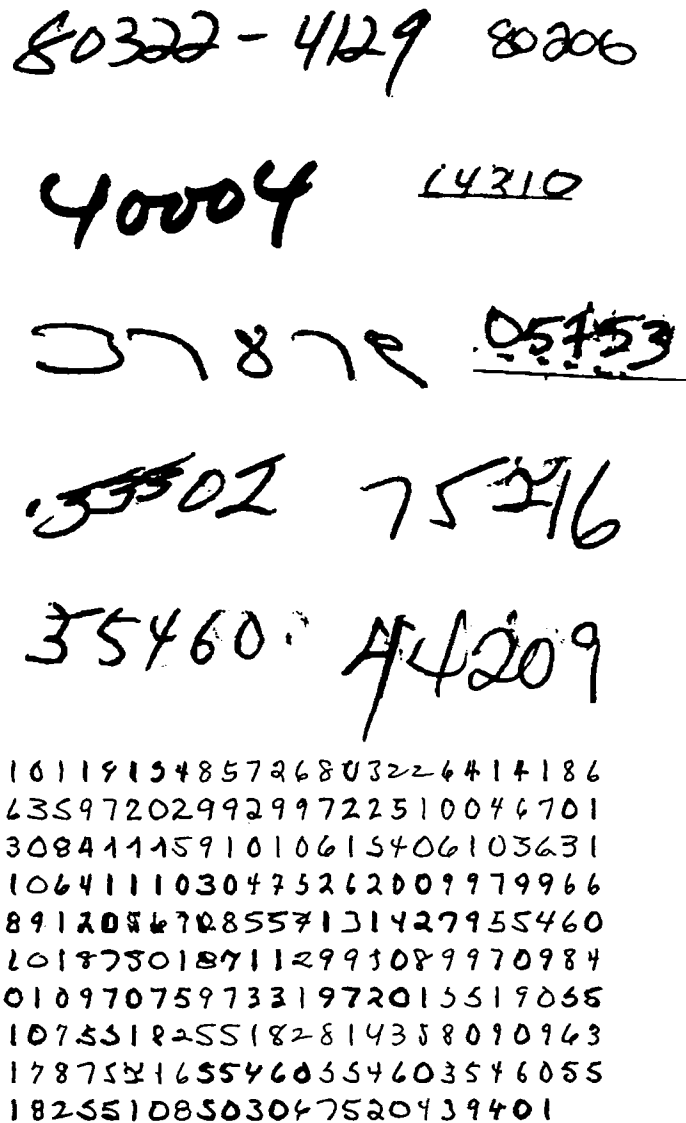 80322-4129 80206
40004 14310
37878 05753
.35502 75216
35460 44209
1011913485726803226414186
6359720299299722510046701
3084111591010615406103631
1064111030475262009979966
8912056708557131427955460
2018730187112993089970984
0109707597331972015519055
1075518255182814358090963
1787521655460554603546055
18255108503067520439401